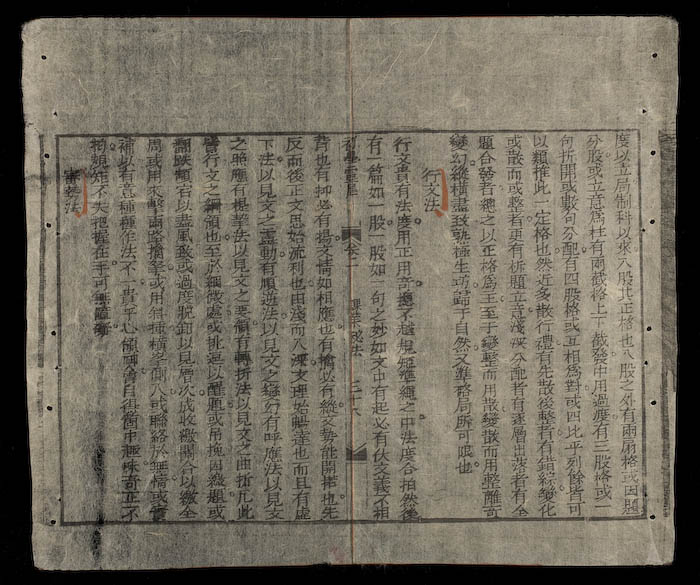 度以立局制科以來八股其正格也八股之外有兩扇格或因題
分股或立意爲柱有兩截格上下截發中用過渡有三股格或一
句折開或數句分配有四股格或互相爲對或四比平列餘皆可
以類推此一定格也然近多散行體有先散後整者有錯綜變化
或散而或整者更有拆題立意淺深分配者有逐層出沒者有全
題合發者總之以正格爲主至于變整而用散變散而用整離奇
變幻縱橫盡致熟極生巧歸于自然又豈格局所可限也
行文法
行文貴有法度用正用奇總不越規矩繩之中法度合拍然後
有一篇如一股一股如一句之妙如文中有起必有伏文義不相
背也有抑必有揚文情如相應也有擒必有縱文勢能開拓也先
反而後正文思始流利也由淺而入深文理始暢達也而且有虛
下法以見文之靈動有順逆法以見文之變幻有呼應法以見文
之照應有提挈法以見文之要領有轉折法以見文之曲折凡此
皆行文之綱領也至於細微處或挑逗以醒題或吊挽因緻題或
翻跌類宕以盡風致或過度脫卸以見層次或收繳關合以緻全
局或用夾擊兩路擒拏或用斜插橫峯側入或聯絡於無情或實
補以有意種種作法不一貴平心傾神會自得箇中趣味奇正不
拘規矩不失把握在手可無礙
審勢法
初學靈犀
卷一
舉業秘法
三十八